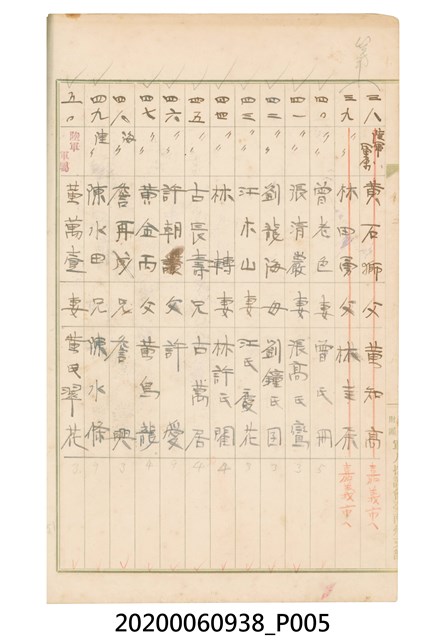 三八 陸軍軍屬 黃石獅 父 黃知高 嘉義市へ
三九 〃 林四勇 父 林圭 嘉義市へ
四〇 〃 曾老色 妻 曾氏冊 5
四一 〃 張清巖 妻 張高氏鸞 3
四二 〃 劉龍海 母 劉鐘氏国
四三 〃 江木山 妻 江氏慶花
四四 〃 林轉 妻 林許氏 4
四五 〃 古長壽 兄 古萬居 4
四六 〃 許朝 父 許愛
四七 〃 黃金丙 父 黃烏龍 4
四八 海〃 詹再 兄 詹興 3
四九 陸〃 陳水田 兄 陳水條
五〇 陸軍軍屬 葉萬臺 妻 葉氏翠花
20200060938_P005